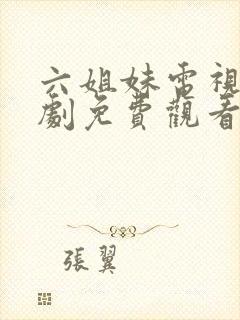 六姐妹電視
劇免費觀看
張翼